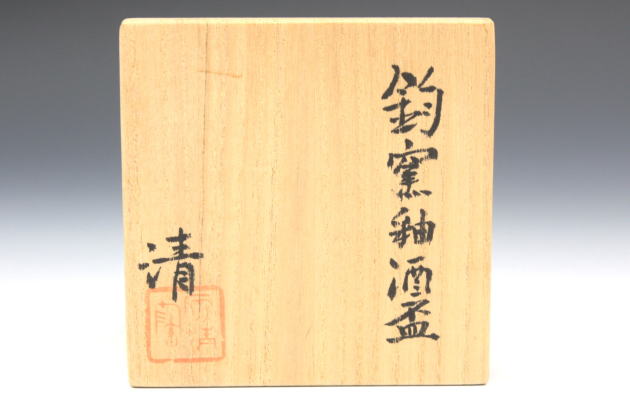 鈞窯釉酒盃
清